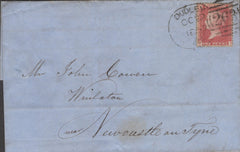 DUDLEY
Mr John Cowen
Winlaton
near
Newcastle on Tyne